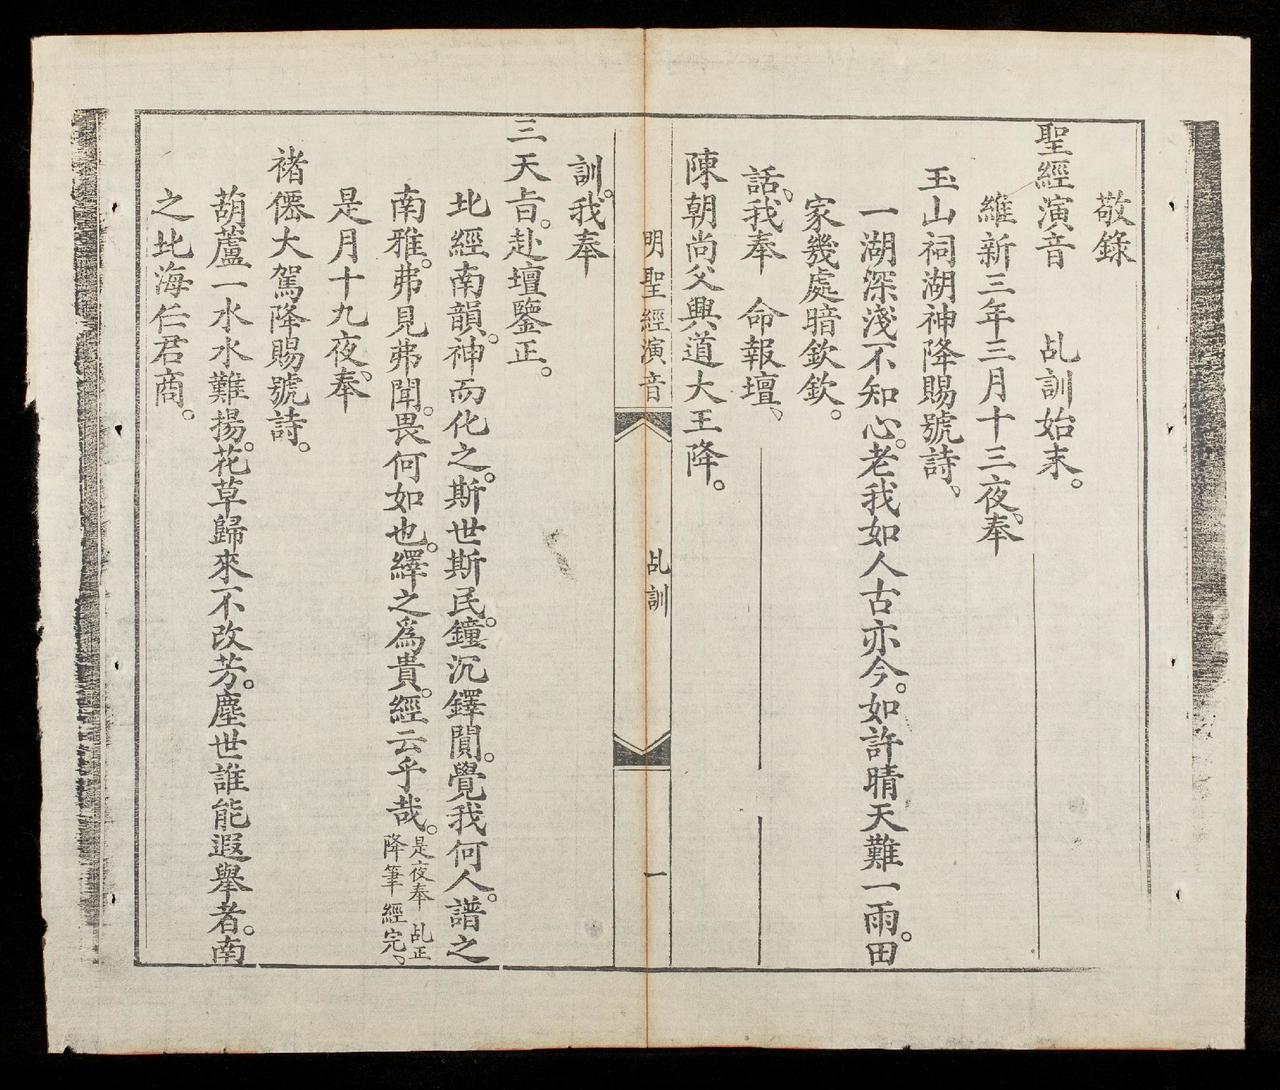 敬錄
聖經演音　乩訓始末。
維新三年三月十三夜、奉
玉山祠湖神降賜號詩、
一湖深淺不知心。老我如人古亦今。如許晴天難一雨。田
家幾處暗欽欽。
話、我奉　命報壇、
陳朝尚父興道大王降。
明聖經演音　乩訓　一
訓。我奉
三天旨。赴壇鑒正。
北經南韻。神而化之。斯世斯民。鐘沉鐸閴。覺我何人。譜之
南雅。弗見弗聞。畏何如也。繹之爲貴。經云乎哉。是夜奉　乩正
降筆經完、
是月十九夜、奉
褚僊大駕降賜號詩。
葫蘆一水水難揚。花草歸來不改芳。塵世誰能遐舉者。南
之北海仁君商。